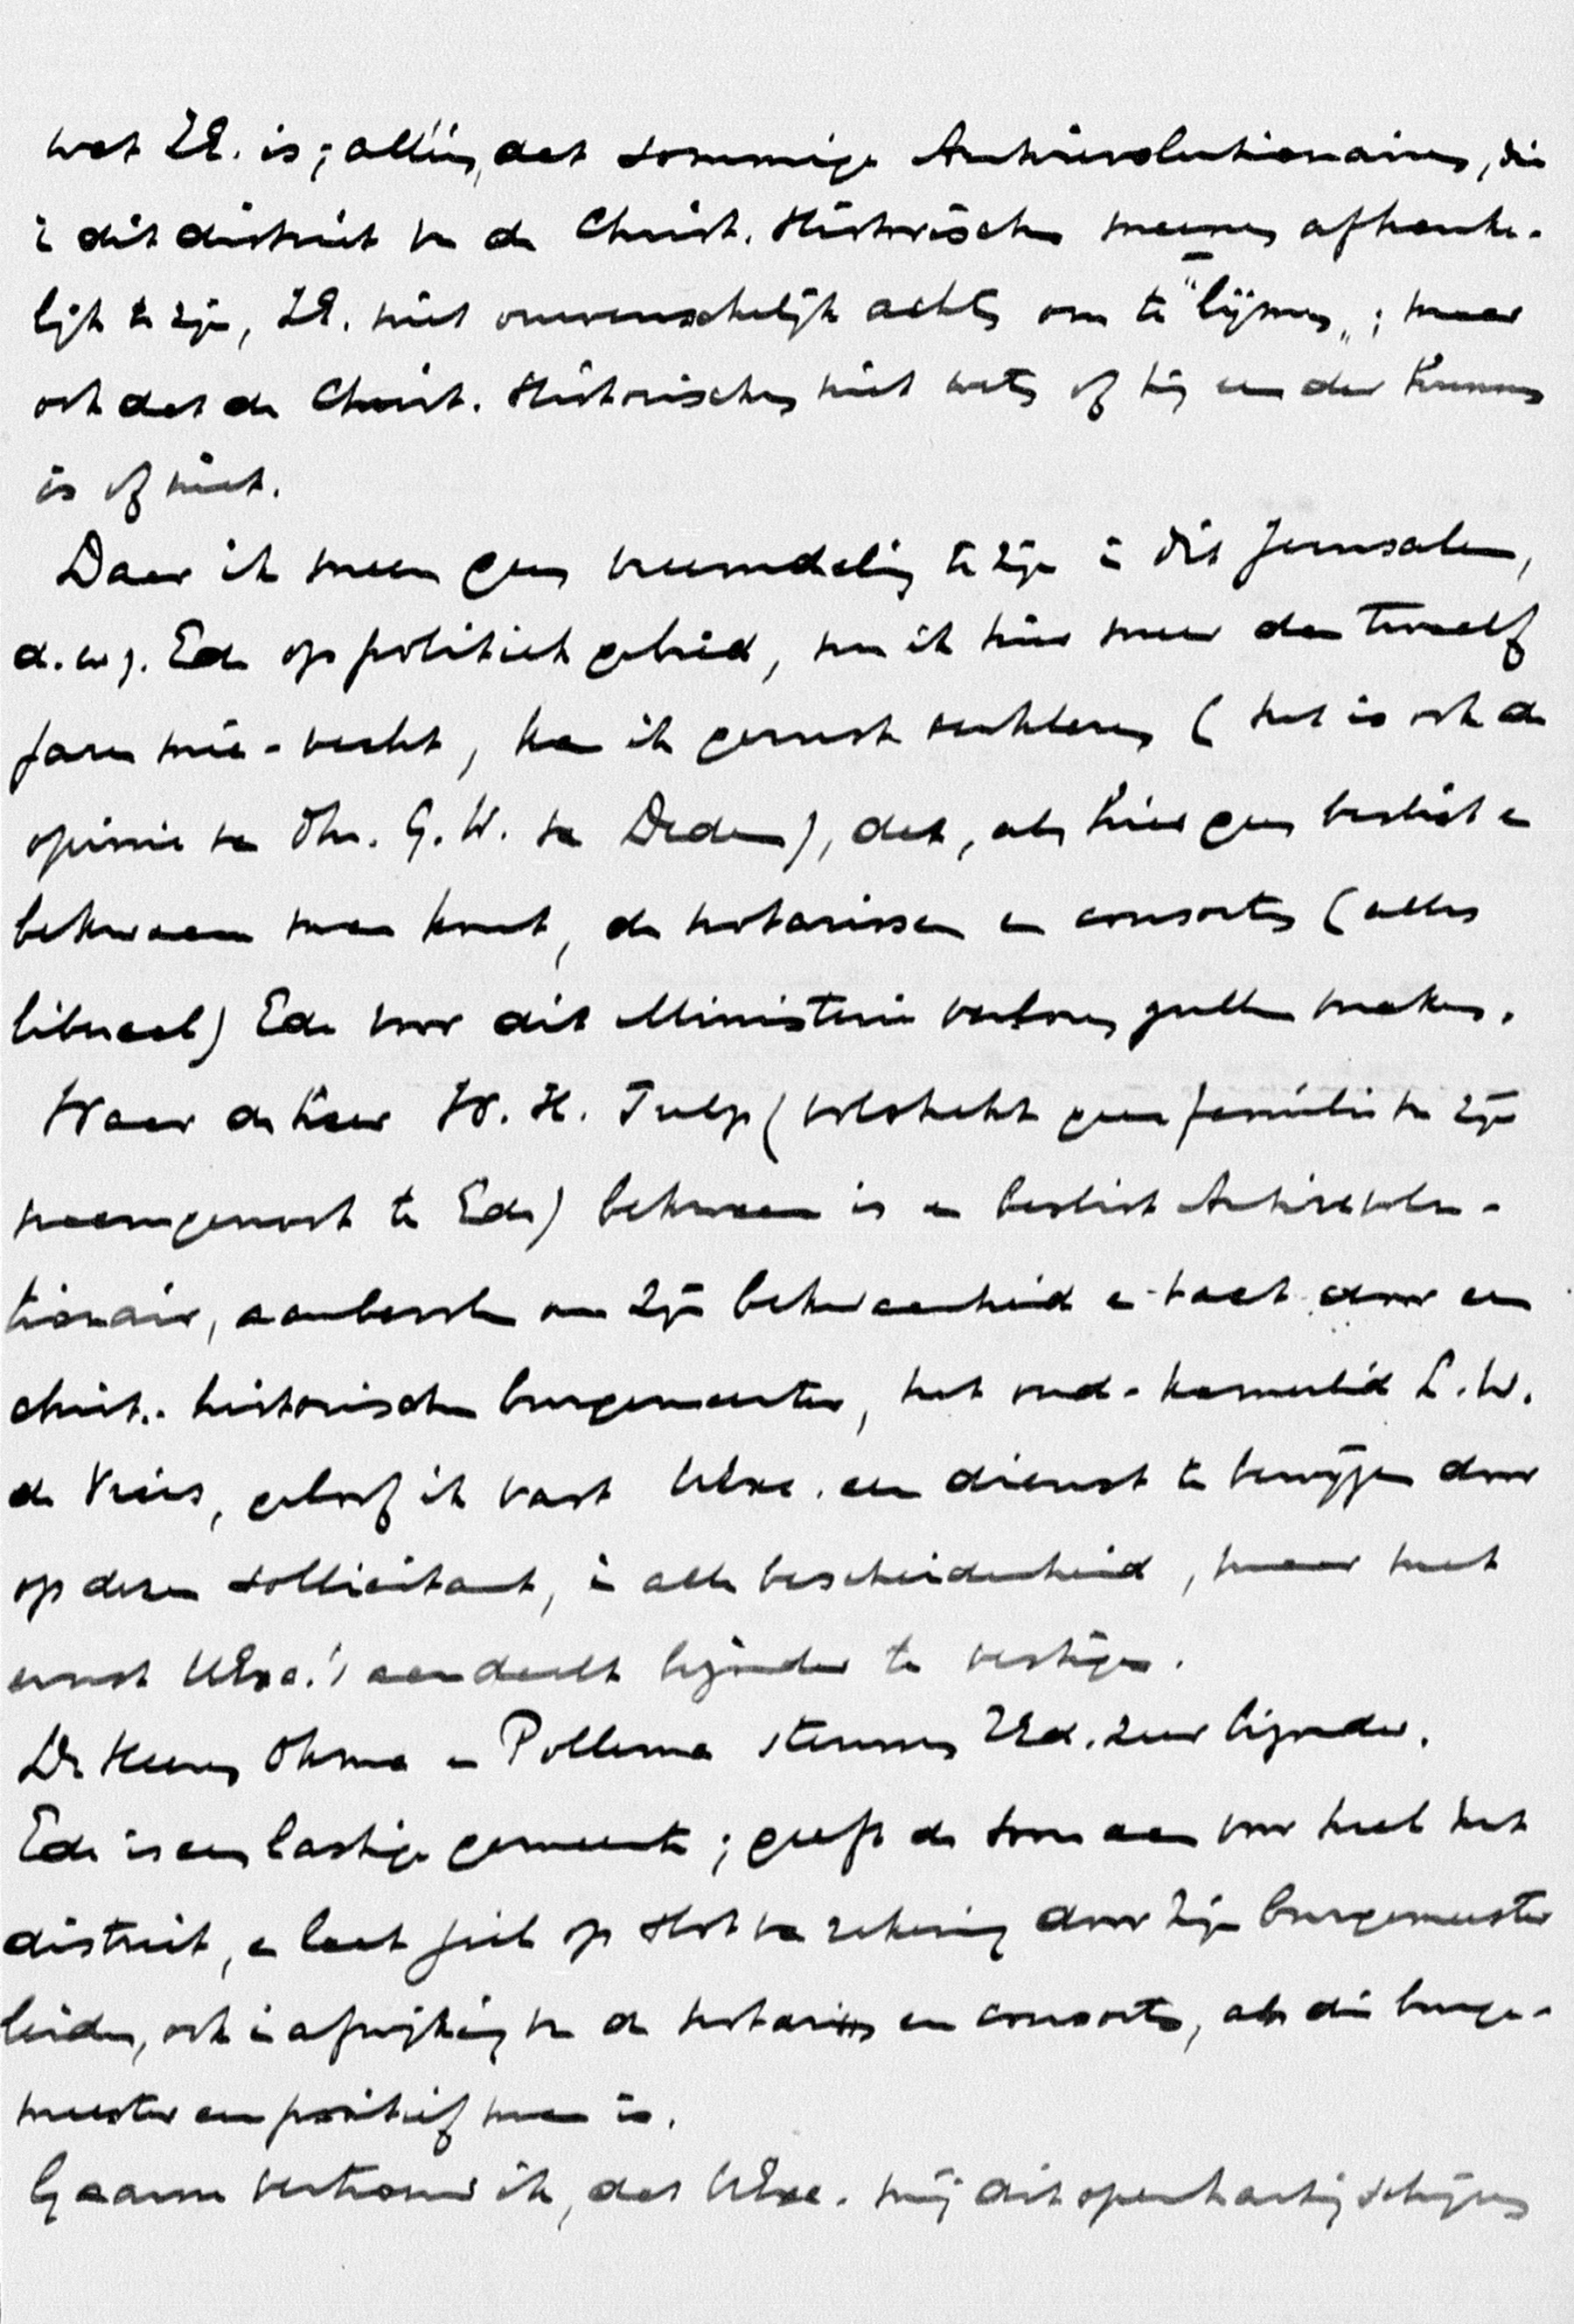 wat ZE. is; alléén, dat sommige Antirevolutionairen, die
in dit district van de Christ. Historischen meenen afhanke-
lijk te zijn, ZE. niet onwenschelijk achten om te "lijmen"; maar
ook dat de Christ. Historischen niet weten of hij een der hunnen
is of niet.
Daar ik meen geen vreemdeling te zijn in dit Jerusalem,
d.w.z. Ede op politiek gebied, nu ik hier meer dan twaalf
jaren mee-vecht, kan ik gerust verklaren (het is ook de
opinie van Dhr. G. W. van Dedem), dat, als hier geen beslist en
bekwaam man komt, de notarissen en consorten (alles
liberaal) Ede voor dit Ministerie verloren zullen maken.
Waar de heer W. H. Tulp (volstrekt geen familie van zijn
naamgenoot te Ede) bekwaam is en beslist Antirevolu-
tionair, aanbevolen om zijn bekwaamheid en tact door een
christ. historischen burgemeester, het oud-kamerlid L. W.
de Vries, geloof ik vast UExc. een dienst te bewijzen door
op dezen sollicitant, in alle bescheidenheid, maar met
ernst UExc.'s aandacht bijzonder te vestigen.
De Heeren Okma en Pollema steunen ZEd. zeer bijzonder.
Ede is een lastige gemeente; geeft de toon aan voor heel het
district, en laat zich op slot van rekening door zijn burgemeester
leiden, ook in afwijking van de notaris en consorten, als die burge-
meester een positief man is.
Gaarne vertrouw ik, dat UExc. mij dit openhartig schrijven